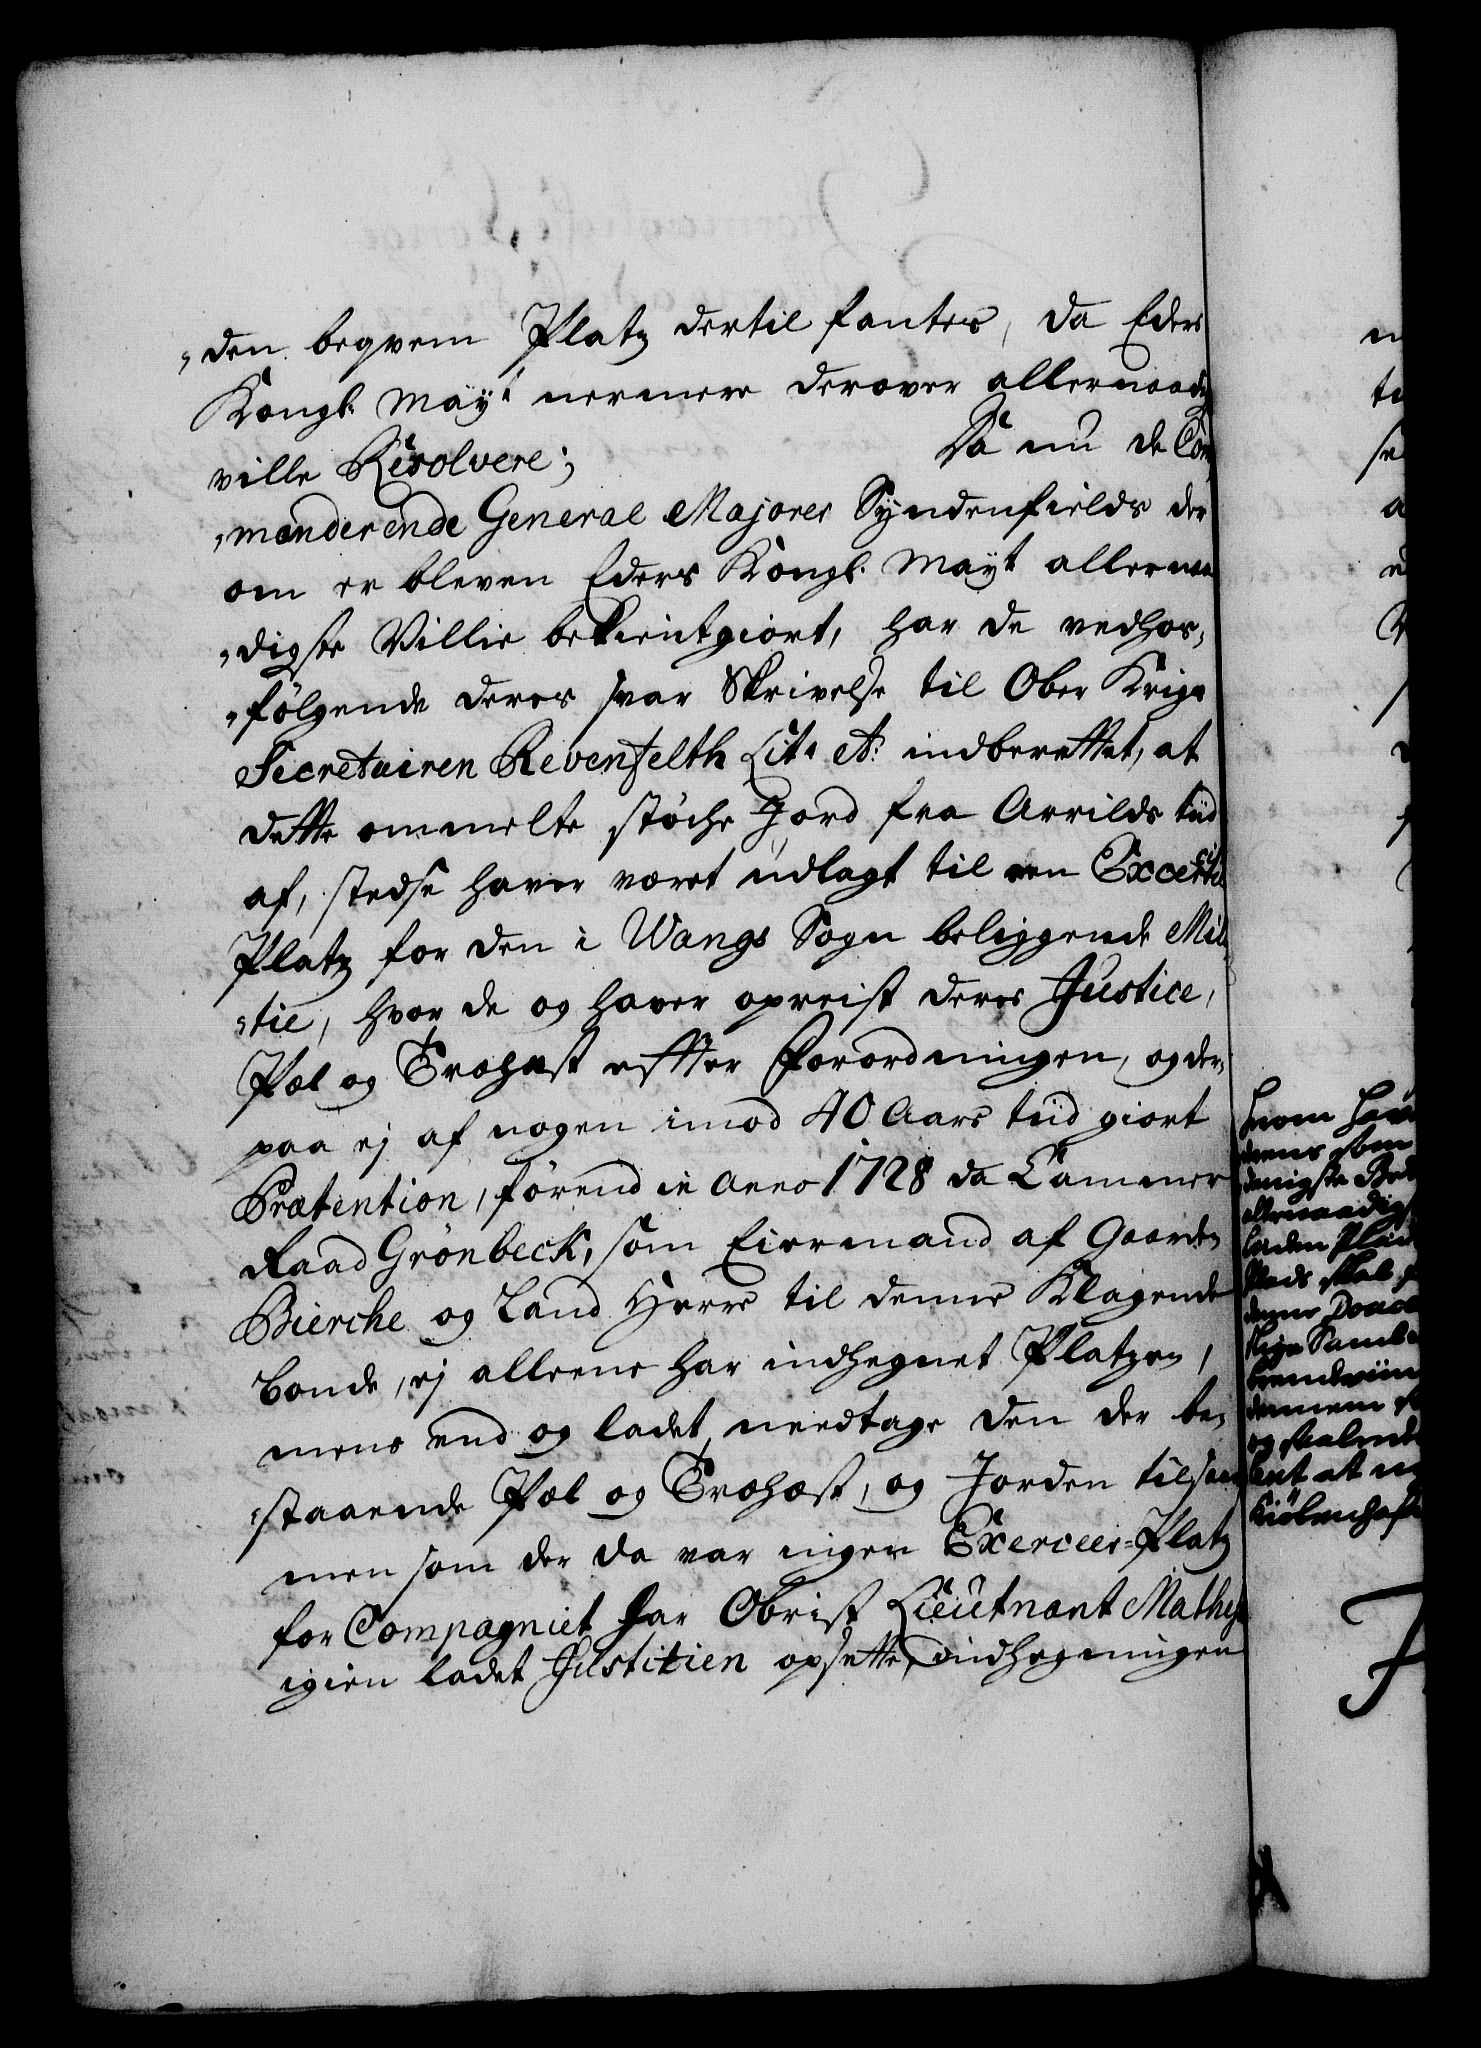 „den beqvem Platz dertil fantes, da Eders
Kongl. Mayt nermere derover allernaadigst
ville Resolvere;              Da nu de Com„
„manderende General Majorer Syndenfields der
om er bleven Eders Kongl. Mayt allernaa
„digste Villie bekientgiort, har de vedhos„
„følgende deres svar Skrivelse til Ober Krigs
Secretairen Revenfelth Lit. A: indberettet, at
dette ommelte støche Jord fra Arrilds tiid
af, stedse haver været udlagt til en Excercitie
Platz for den i Wangs Sogn beliggende Mili„
„tie, hvor de og haver opreist deres Justice,
Pæl og Træhæst efter Forordningen, og der„
paa ej af nogen imod 40 Aars tiid giort
Prætention, førend in Anno 1728 da Cammer
Raad Grönbeck, som Eiermand af Gaarden
Bierche og Land Herre til denne Klagende
Bonde, ej alleene har indhegnet Platzen,
mens end og ladet needtage den der be„
„staaende Pæl og Træhæst, og Jorden tilsaa
men som der da var ingen Exerceer-Platz
for Compagniet har Obrist Lieutnant Mathes
igien ladet Justitien opsette, indhegningen